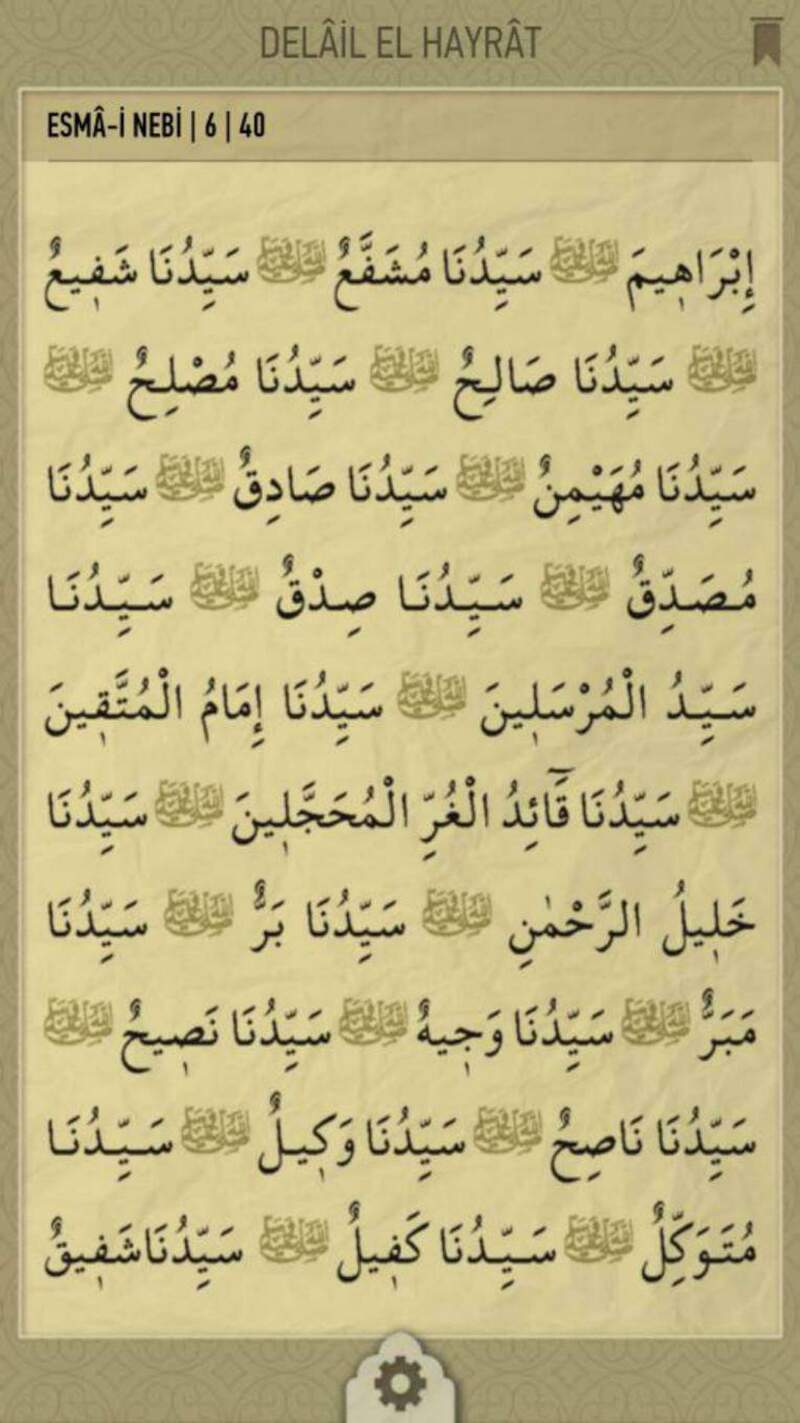 DELÂİL EL HAYRÂT
ESMÂ-İ NEBİ | 6 | 40
إِبْرَاهِيمَ ﷺ سَيِّدُنَا مُشَفَّعٌ ﷺ سَيِّدُنَا شَفِيعٌ
ﷺ سَيِّدُنَا صَالِحٌ ﷺ سَيِّدُنَا مُصْلِحٌ ﷺ
سَيِّدُنَا مُهَيْمِنٌ ﷺ سَيِّدُنَا صَادِقٌ ﷺ سَيِّدُنَا
مُصَدِّقٌ ﷺ سَيِّدُنَا صِدْقٌ ﷺ سَيِّدُنَا
سَيِّدُ الْمُرْسَلِينَ ﷺ سَيِّدُنَا إِمَامُ الْمُتَّقِينَ
ﷺ سَيِّدُنَا قَٓائِدُ الْغُرِّ الْمُحَجَّلِينَ ﷺ سَيِّدُنَا
خَلِيلُ الرَّحْمٰنِ ﷺ سَيِّدُنَا بَرٌّ ﷺ سَيِّدُنَا
مَبَرٌّ ﷺ سَيِّدُنَا وَجِيهٌ ﷺ سَيِّدُنَا نَصِيحٌ ﷺ
سَيِّدُنَا نَاصِحٌ ﷺ سَيِّدُنَا وَكِيلٌ ﷺ سَيِّدُنَا
مُتَوَكِّلٌ ﷺ سَيِّدُنَا كَفِيلٌ ﷺ سَيِّدُنَا شَفِيقٌ